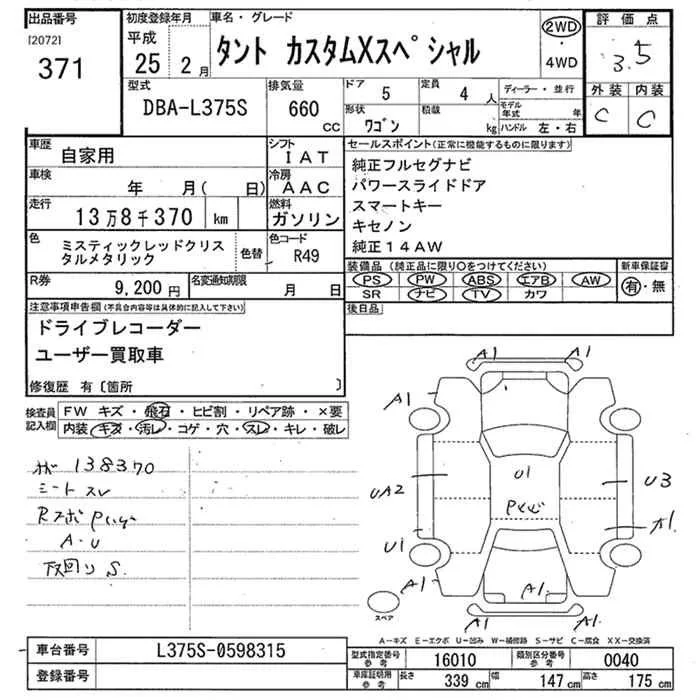 出品番号
[2072]
371
初度登録年月
平成
25年2月
車名・グレード
タント カスタムXスペシャル
2WD
・
4WD
評価点
3.5
外装 内装
C C
型式
DBA-L375S
排気量
660
cc
ドア
5
定員
4人
形状
ワゴン
積載
kg
ディーラー・並行
モデル年式 年
ハンドル 左・右
車歴
自家用
シフト
IAT
車検
年 月( 日)
冷房
AAC
走行
13万8千370 km
燃料
ガソリン
色
ミスティックレッドクリスタルメタリック
色替
色コード
R49
R券
9,200円
名変通知期限
月 日
セールスポイント(正常に機能するものに限ります)
純正フルセグナビ
パワースライドドア
スマートキー
キセノン
純正14AW
装備品(純正品に限り○をつけてください)
新車保証書
PS PW ABS エアB AW
SR ナビ TV カワ
有・無
後日品
注意事項申告欄(不具合内容等は具体的に記入して下さい)
ドライブレコーダー
ユーザー買取車
修復歴 有〔箇所 〕
検査員記入欄
FW キズ・飛石・ヒビ割・リペア跡・×要
内装・キズ・汚レ・コゲ・穴・スレ・キレ・破レ
138370
シートスレ
A・U
下回りS
A1 A1
A1
U1
UA2
U3
U1
A1
A1
A1
A1
A1 A1.
スペア
A-キズ E-エクボ U-凹み W-補修跡 S-サビ C-腐食 XX-交換済
車台番号
L375S-0598315
登録番号
型式指定番号
参考
16010
類別区分番号
参考
0040
車庫証明用
参考
長さ
339 cm
幅
147 cm
高さ
175 cm